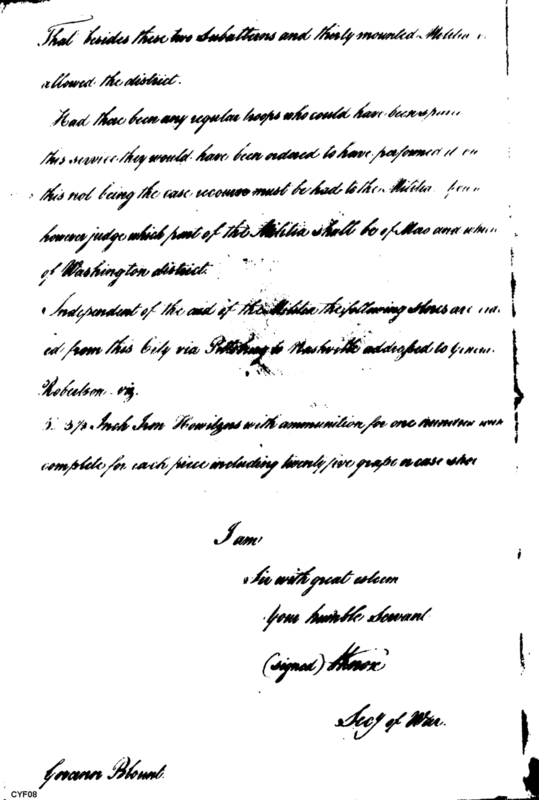 That besides these two Subalterns and thirty mounted Militia
allowed the district.
Had there been any regular troops who could have been
this service they would have been ordered to have performed it
this not being the case recourse must be had to the Militia
however judge which part of the Militia shall be of Mero and
of Washington district.
Independent of the aid of the Militia the following stores are
ed from this City via Pittsburg to Nashville addressed to
Robertson viz.
Inch Iron Howitzers with ammunition for one
complete for each piece including twenty five grape or case
I am
Sir with great esteem
Your humble Servant
(signed) HKnox
Secy of War.
Governor Blount.
CYF08